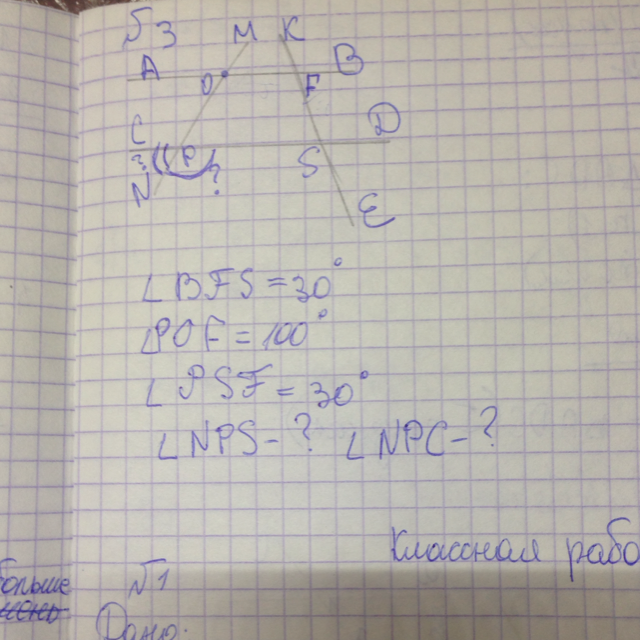 √3 M K
A O B
F
C D
? P ? S
N
E
∠BFS = 30°
∠POF = 100°
∠PSF = 30°
∠NPS - ? ∠NPC - ?
Классная рабо
больше √1
Дано: